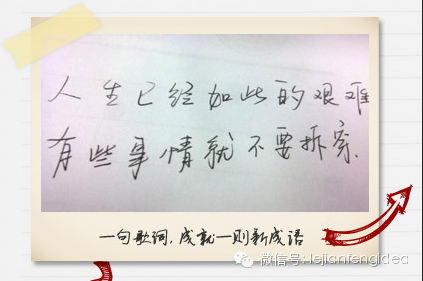 人生已经如此的艰难
有些事情就不要拆穿.
一句歌词,成就一则新成语
微信号: lejianfengidea